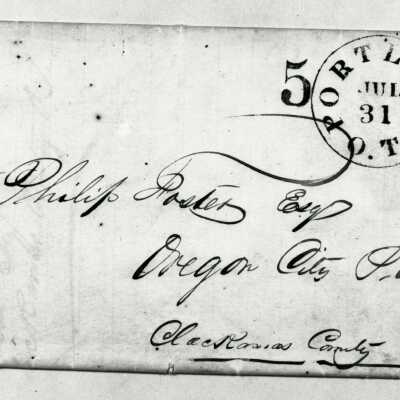 5
PORTL
JUL
31
O.T.
Philip Foster Esq
Oregon City P.
Clackamas County